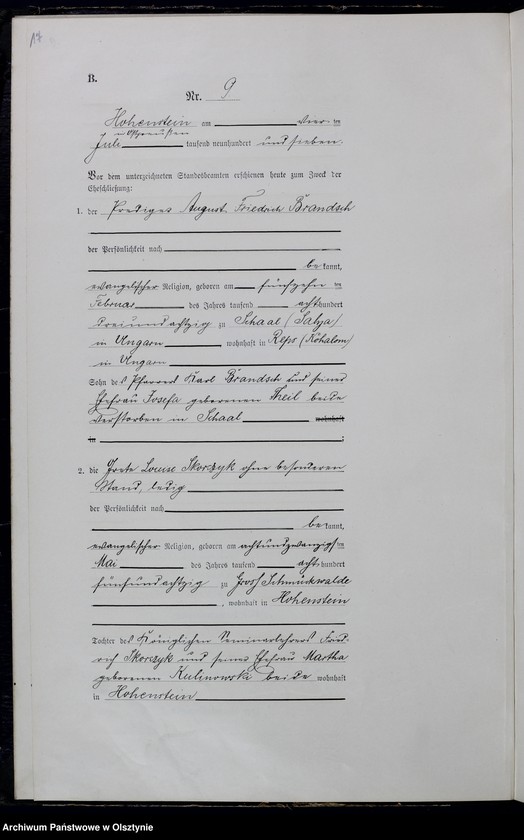 17
B.
Nr. 9
Hohenstein am vierten
in Ostpreußen
Juli tausend neunhundert und sieben.
Vor dem unterzeichneten Standesbeamten erschienen heute zum Zweck der
Eheschließung:
1. der Prediger August Friedrich Brandsch
der Persönlichkeit nach
bekannt,
evangelischer Religion, geboren am fünfzehnten
Februar des Jahres tausend achthundert
dreiundachtzig zu Schaal (Salya)
in Ungarn wohnhaft in Reps (Köhalom)
in Ungarn
Sohn des Pfarrers Karl Brandsch und seiner
Ehefrau Josefa geborenen Theil beide
verstorben in Schaal wohnhaft
in
2. die Grete Louise Skorczyk ohne besonderen
Stand, ledig
der Persönlichkeit nach
bekannt,
evangelischer Religion, geboren am achtundzwanzigsten
Mai des Jahres tausend achthundert
fünfundachtzig zu Gross Schmückwalde
, wohnhaft in Hohenstein
Tochter des Königlichen Seminarlehrers Fried-
rich Skorczyk und seiner Ehefrau Martha
geborenen Kulinowski beide wohnhaft
in Hohenstein
Archiwum Państwowe w Olsztynie